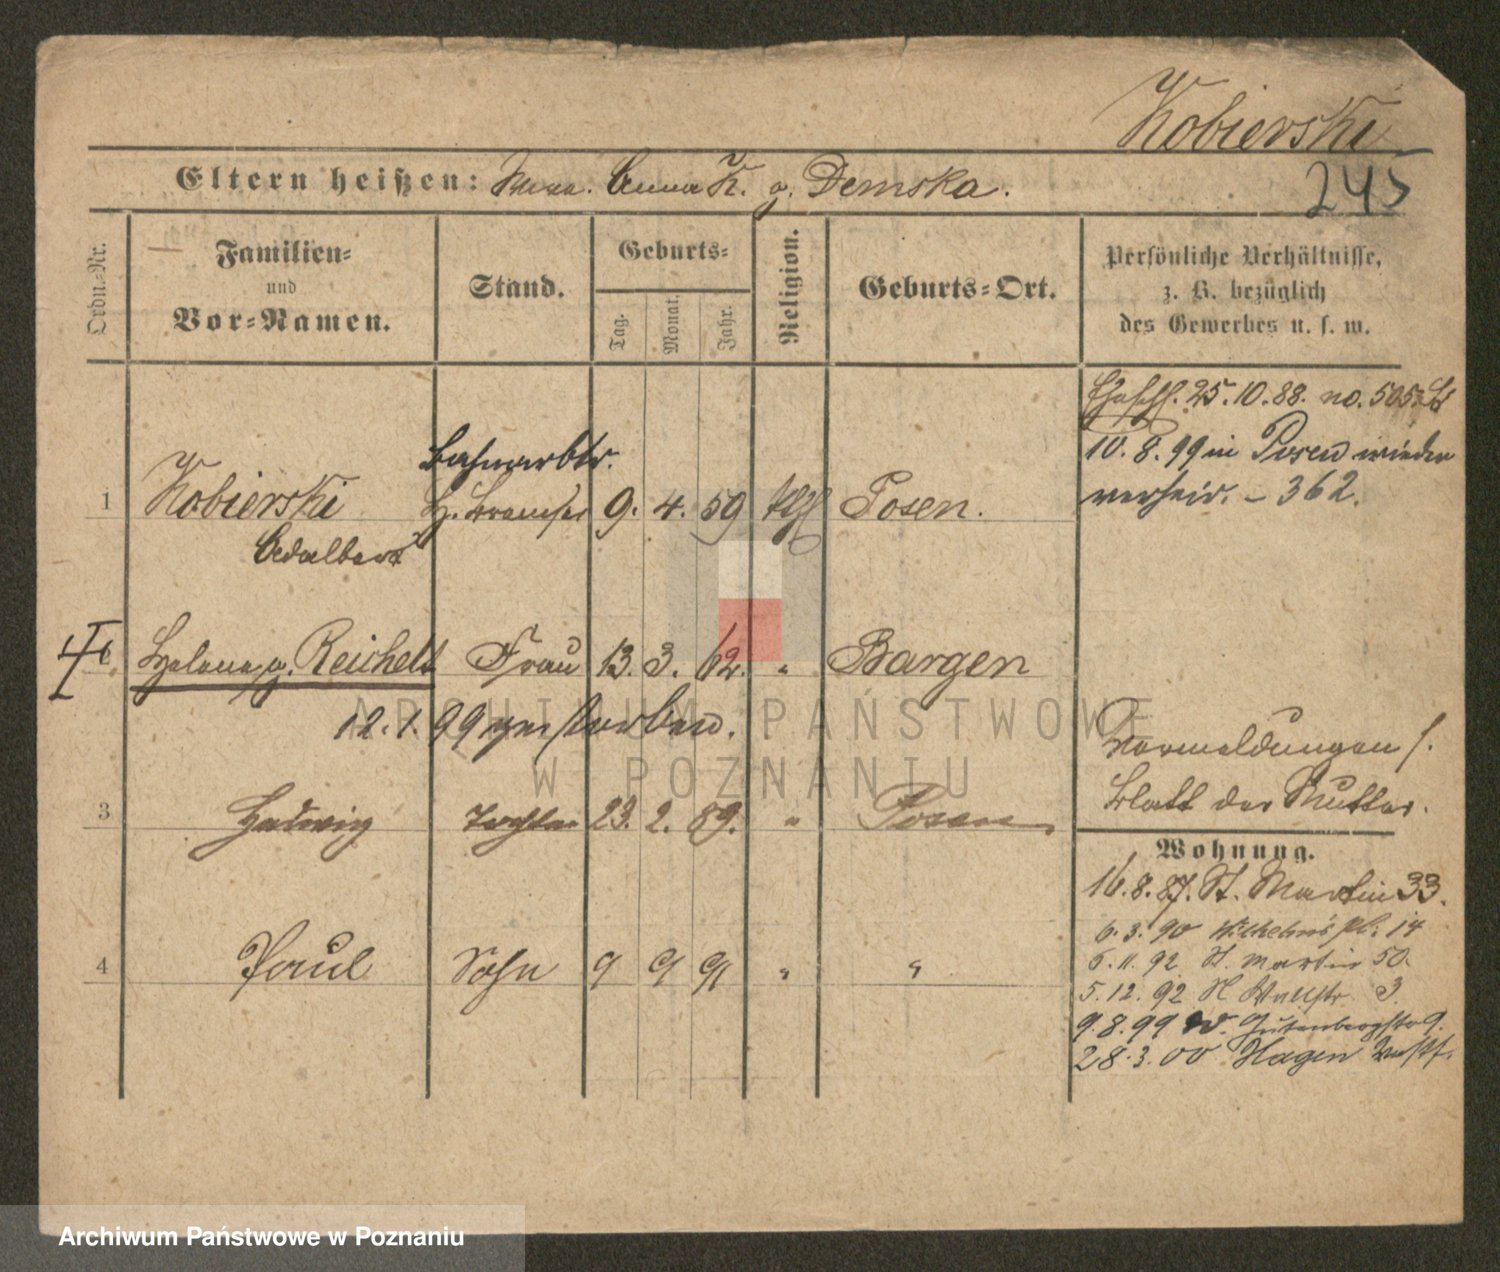 Kobierski
245
Eltern heißen: Anna K. g. Demska.
Ordn.-Nr.
Familien-
und
Vor-Namen.
Stand.
Geburts-
Tag.
Monat.
Jahr.
Religion.
Geburts-Ort.
Persönliche Verhältnisse,
z. B. bezüglich
des Gewerbes u. s. w.
25.10.88. no. 505
10.8.99 in Posen wieder
verheir. - 362.
Bahnarbtr.
1 Kobierski 9. 4. 59 kth Posen.
Adalbert
II
Helene g. Reichelt Frau 13. 3. 62. " Bargen
12.1.99 gestorben.
Vormeldungen s.
Blatt der Mutter.
3 Hedwig Tochter 23. 2. 89. " Posen
4 Paul Sohn 9 9 91 " "
Wohnung.
16.8.87. St. Martin 33.
6.3.90 Wilhelms pl. 14
6.11.92 St. Martin 50.
5.12.92 Wallstr. 3
9.8.99 Gutenbergstr 9.
28.3.00 Hagen Westf.
ARCHIWUM PAŃSTWOWE
W POZNANIU
Archiwum Państwowe w Poznaniu